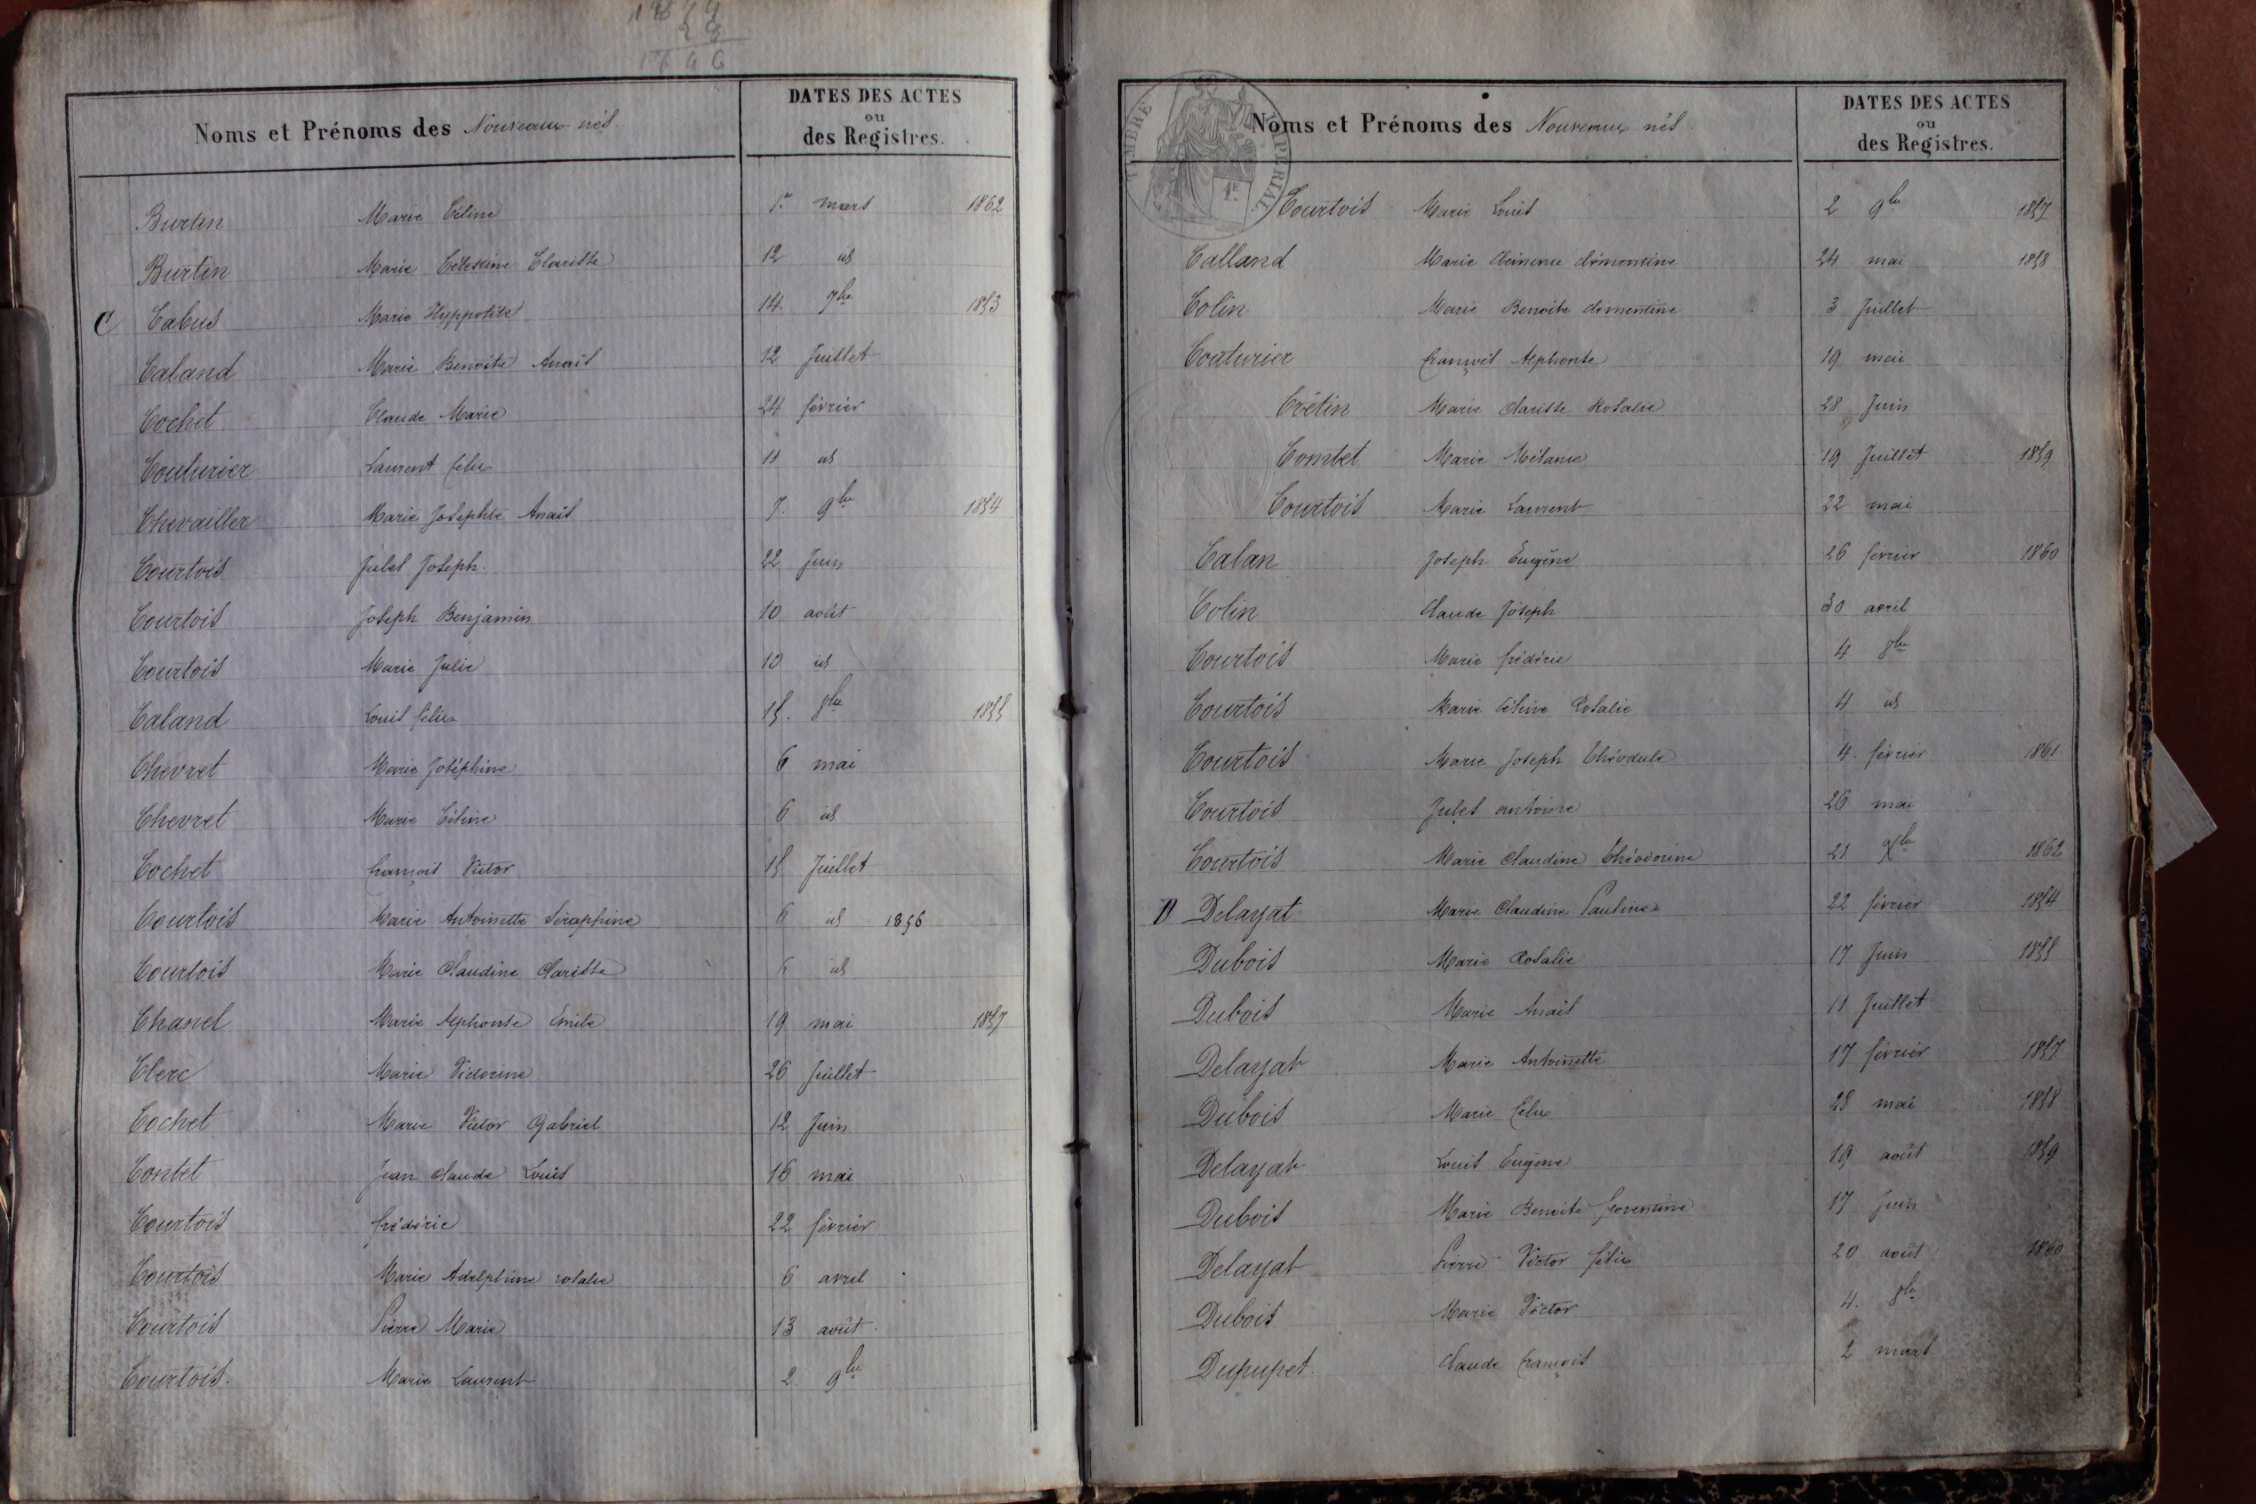 Noms et Prénoms des Nouveaux nés.
DATES DES ACTES
ou
des Registres.
Burtin Marie Céline 1er mars 1862
Burtin Marie Célestine Clarisse 12 id
C Cabus Marie Hyppolite 14. 7bre 1853
Caland Marie Benoite Anaïs 12 Juillet
Cochet Claude Marie 24 février
Couturier Laurent félix 11 id
Chevailler Marie Josephte Anaïs 7. 9bre 1854
Courtois Jules Joseph. 22 Juin
Courtois Joseph Benjamin 10 août
Courtois Marie Julie 10 id
Caland Louis félix 15. 8bre 1855
Chevret Marie Joséphine 6 mai
Chevret Marie Céline 6 id
Cochet françois Victor 15 Juillet
Courtois Marie Antoinette Séraphine 6 id 1856
Courtois Marie Claudine Clarisse 6 id
Chanel Marie Alphonse Emile 19 mai 1857
Clerc Marie Victorine 26 Juillet
Cochet Marie Victor Gabriel 12 Juin
Contet Jean Claude Louis 16 mai
Courtois frédéric 22 février
Courtois Marie Adelphine rosalie 6 avril
Courtois Pierre Marie 13 août.
Courtois. Marie Laurent 2 9bre
TIMBRE IMPERIAL
Noms et Prénoms des Nouveaux nés
DATES DES ACTES
ou
des Registres.
Courtois Marie Louis 2 9bre 1857
Calland Marie 24 mai 1858
Colin Marie Benoite 3 Juillet
Couturier françois Alphonse 19 mai
Crétin Marie Clarisse Rosalie 28 Juin
Combet Marie Mélanie 19 Juillet 1859
Courtois Marie Laurent 22 mai
Calan Joseph Eugène 26 février 1860
Colin Claude Joseph 30 avril
Courtois Marie frédéric 4 8bre
Courtois Marie Céline Rosalie 4 id
Courtois Marie Joseph Théodule 4. février 1861
Courtois Jules antoine 26 mai
Courtois Marie Claudine Théodorine 21 Xbre 1862
D Delayat Marie Claudine Pauline 22 février 1854
Dubois Marie Rosalie 17 Juin 1855
Dubois Marie Anaïs 11 Juillet
Delayat Marie Antoinette 17 février 1857
Dubois Marie félix 28 mai 1858
Delayat Louis Eugène 19 août 1859
Dubois Marie Benoite florentine 17 Juin
Delayat Pierre Victor félix 20 août 1860
Dubois Marie Victor 4. 8bre
Dupupet Claude françois 2 mars